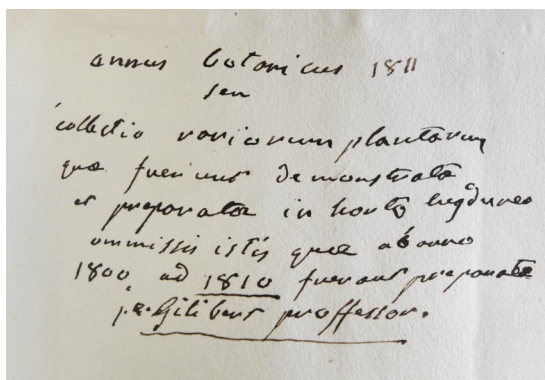 annus botanicus 1811
seu
collectio variorum plantarum
quæ fuerunt demonstratæ
et preparatæ in horto lugduneo
ommissis istis quæ ab anno
1800 ad 1810 fuerunt preparatæ
j.e. Gilibert proffessor.